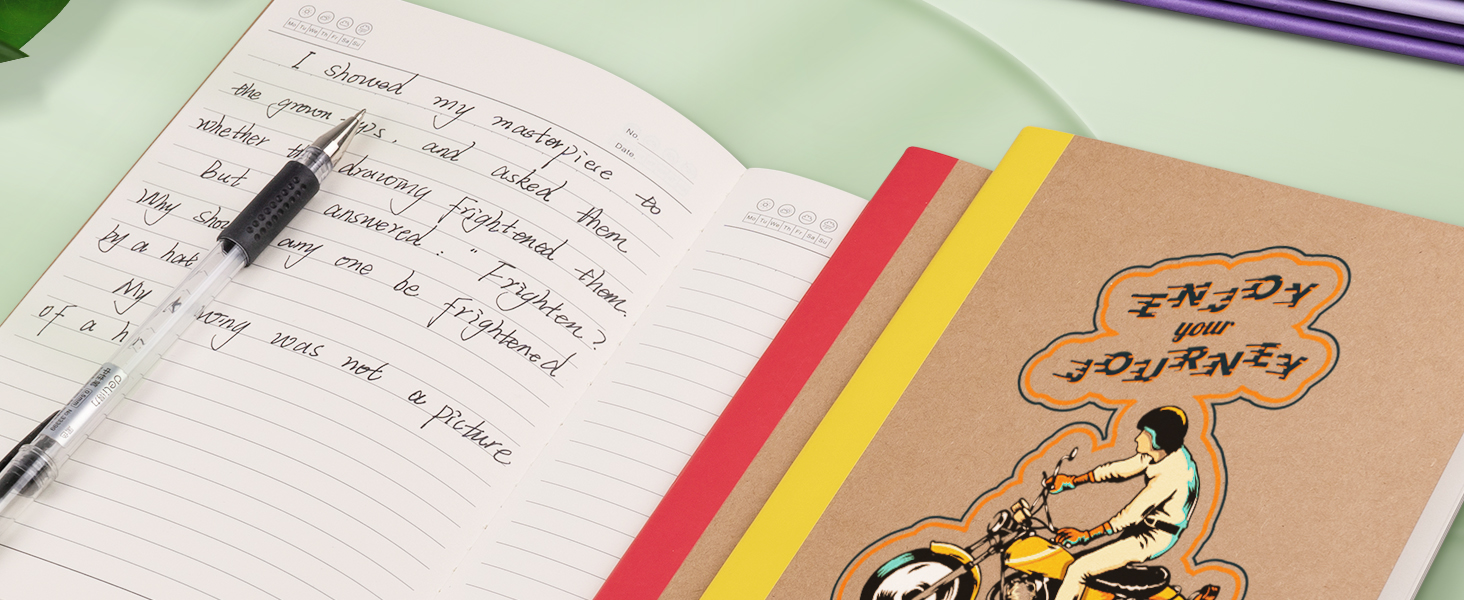 Mo Tu We Th Fr Sa Su
No.
Date.
I showed my masterpiece to
the grown-ups, and asked them
whether the drawing frightened them.
But answered: "Frighten?
Why should any one be frightened
by a hat
My drawing was not a picture
of a hat
Mo Tu We Th Fr Sa Su
ENJOY
your
JOURNEY
deli